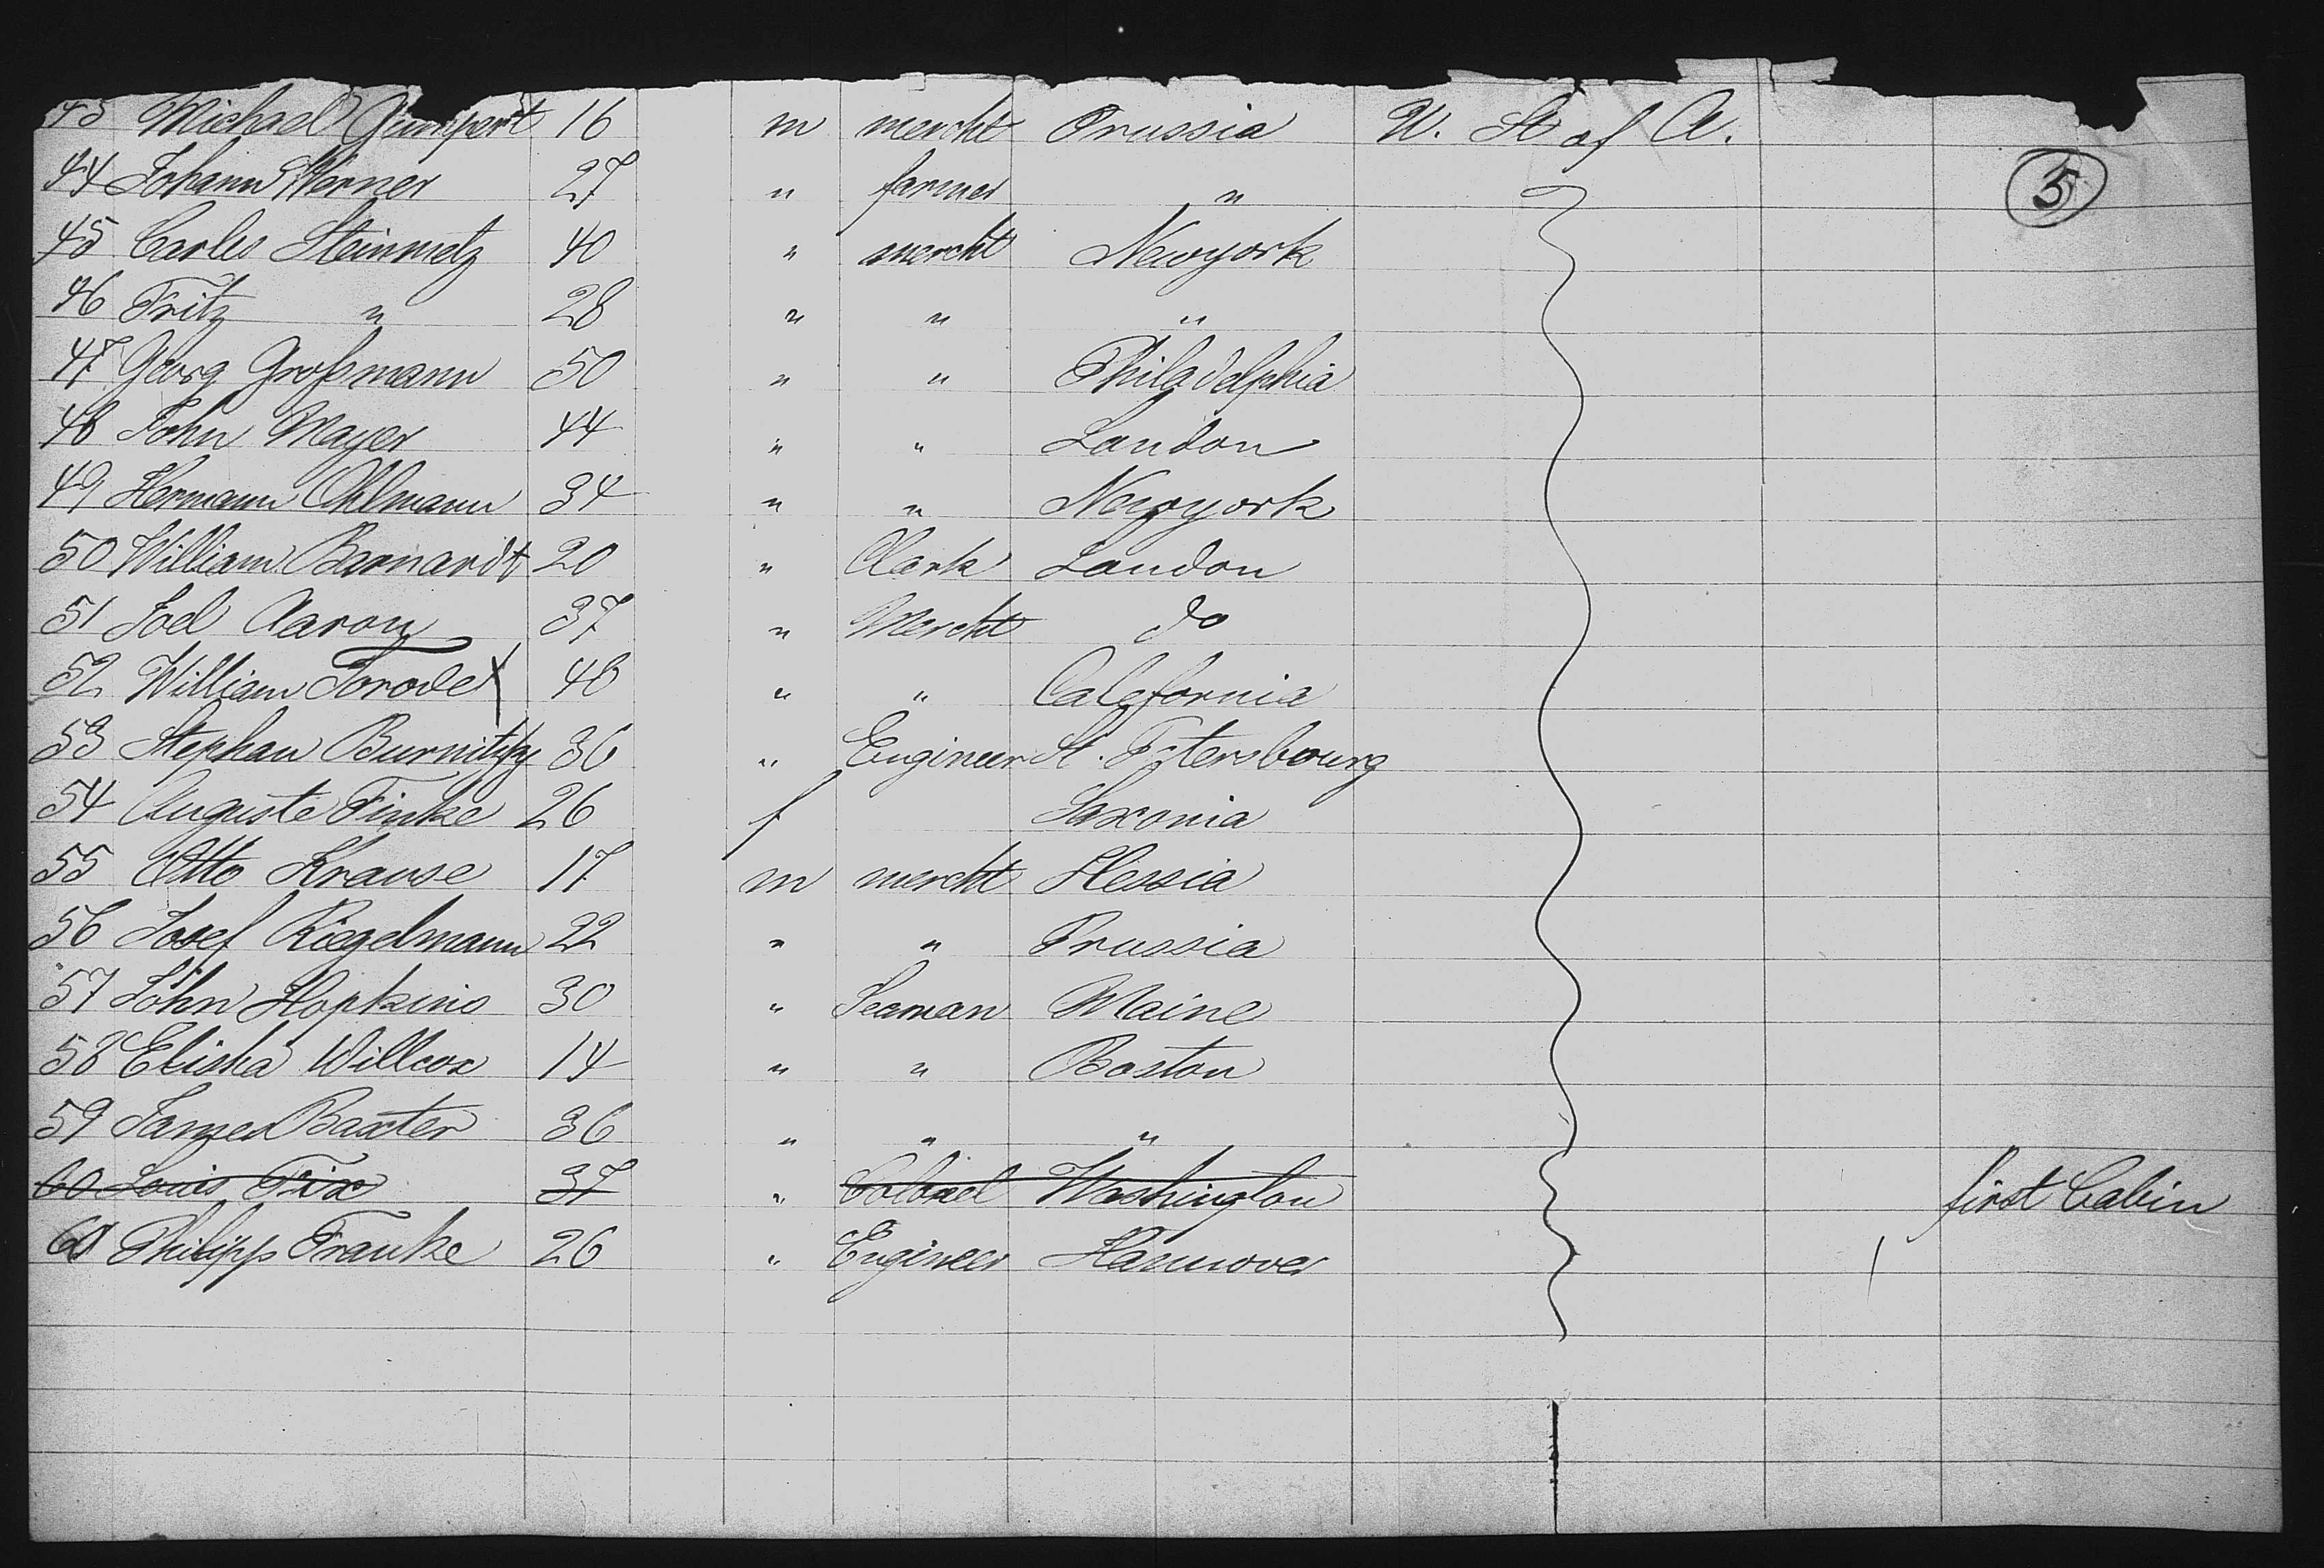 43 Michael Gumpert 16 m mercht Prussia U. St of A.
5
44 Johann Werner 27 " farmer "
45 Carles Steinmetz 40 " mercht Newyork
46 Fritz " 28 " " "
47 Georg Großmann 50 " " Philadelphia
48 John Mayer 44 " " London
49 Hermann Ohlmann 34 " " Newyork
50 William Barnardt 20 " Clark London
51 Joel Aaron 37 " Mercht do
52 William Torode X 48 " " California
53 Stephan 36 " Engineer St. Petersbourg
54 Auguste Finke 26 f Saxonia
55 Otto Krause 17 m mercht Hessia
56 Josef Riegelmann 22 " " Prussia
57 John Hopkins 30 " Seaman Maine
58 Elisha Willcox 14 " " Boston
59 James Baxter 36 " " "
60 Louis Fix 37 " Colonel Washington first Cabin
60 Philipp Franke 26 " Engineer Hannover